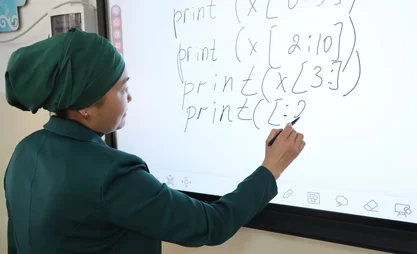 print (x[0:5])
print (x[2:10])
print(x[3:])
print([:2